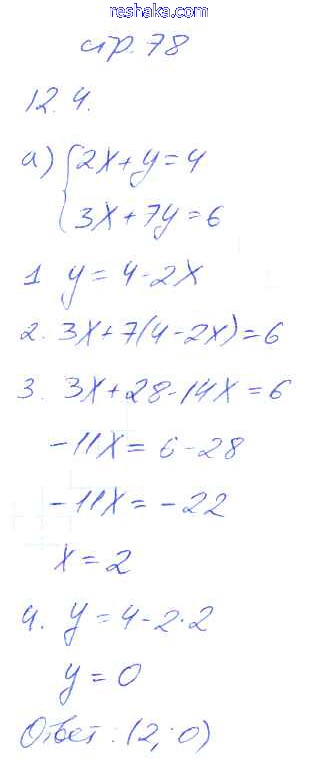 reshaka.com
стр. 78
12.4.
а) { 2x+y=4
3x+7y=6
1 y=4-2x
2. 3x+7(4-2x)=6
3. 3x+28-14x=6
-11x=6-28
-11x=-22
x=2
4. y=4-2·2
y=0
Ответ: (2; 0)